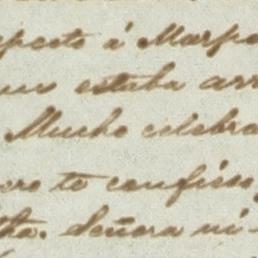 epecto á Marpa
estaba arr
Mucho celebra
ero te confieso,
tha. Señora ni-